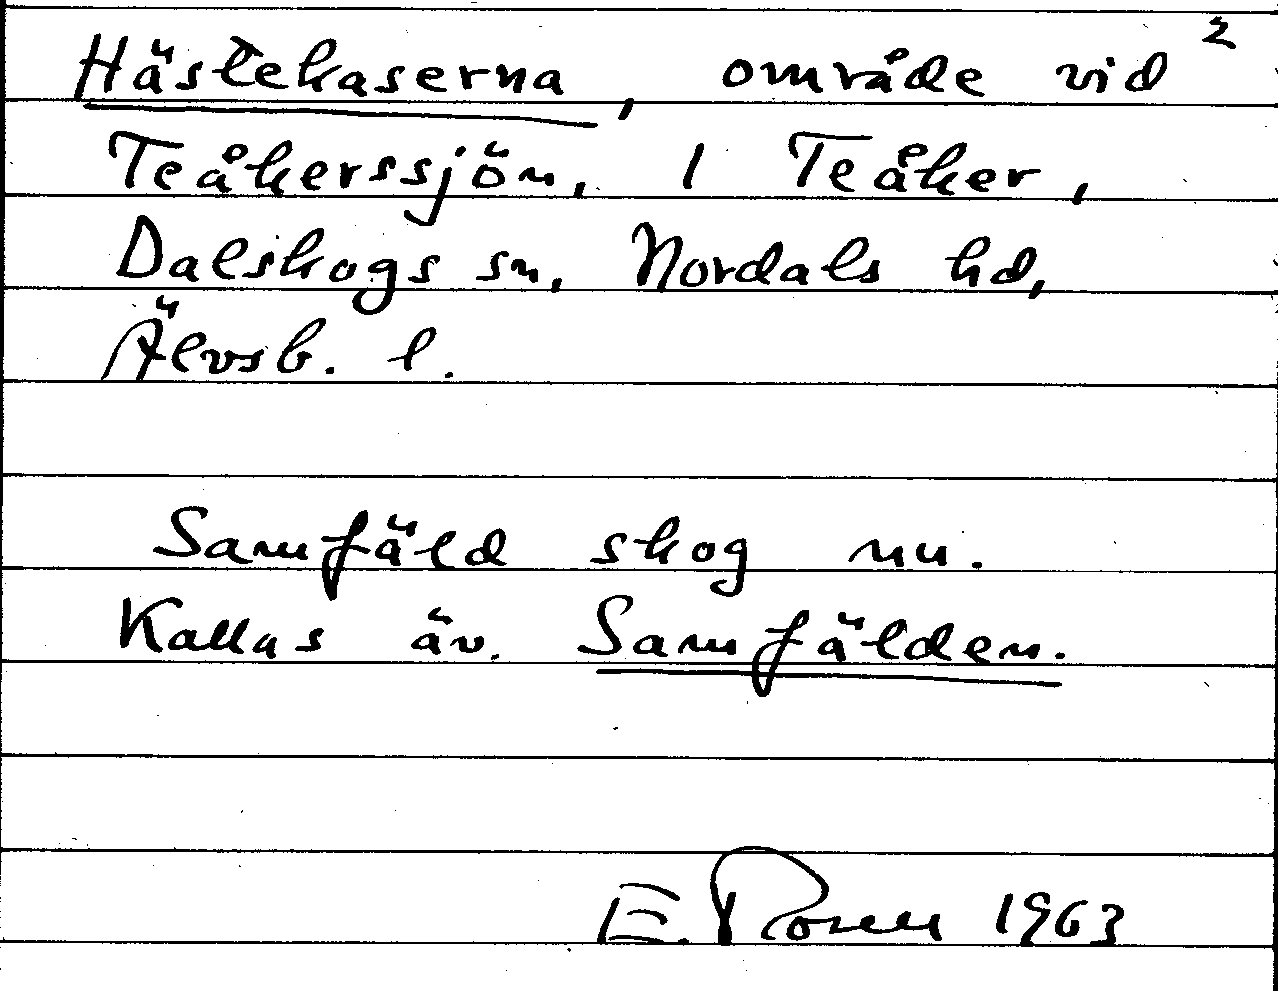 2
Hästekaserna, område vid
Teåkerssjön, 1 Teåker,
Dalskogs sn, Nordals hd,
Älvsb. l.
Samfäld skog nu.
Kallas äv. Samfälden.
E. Rosell 1963